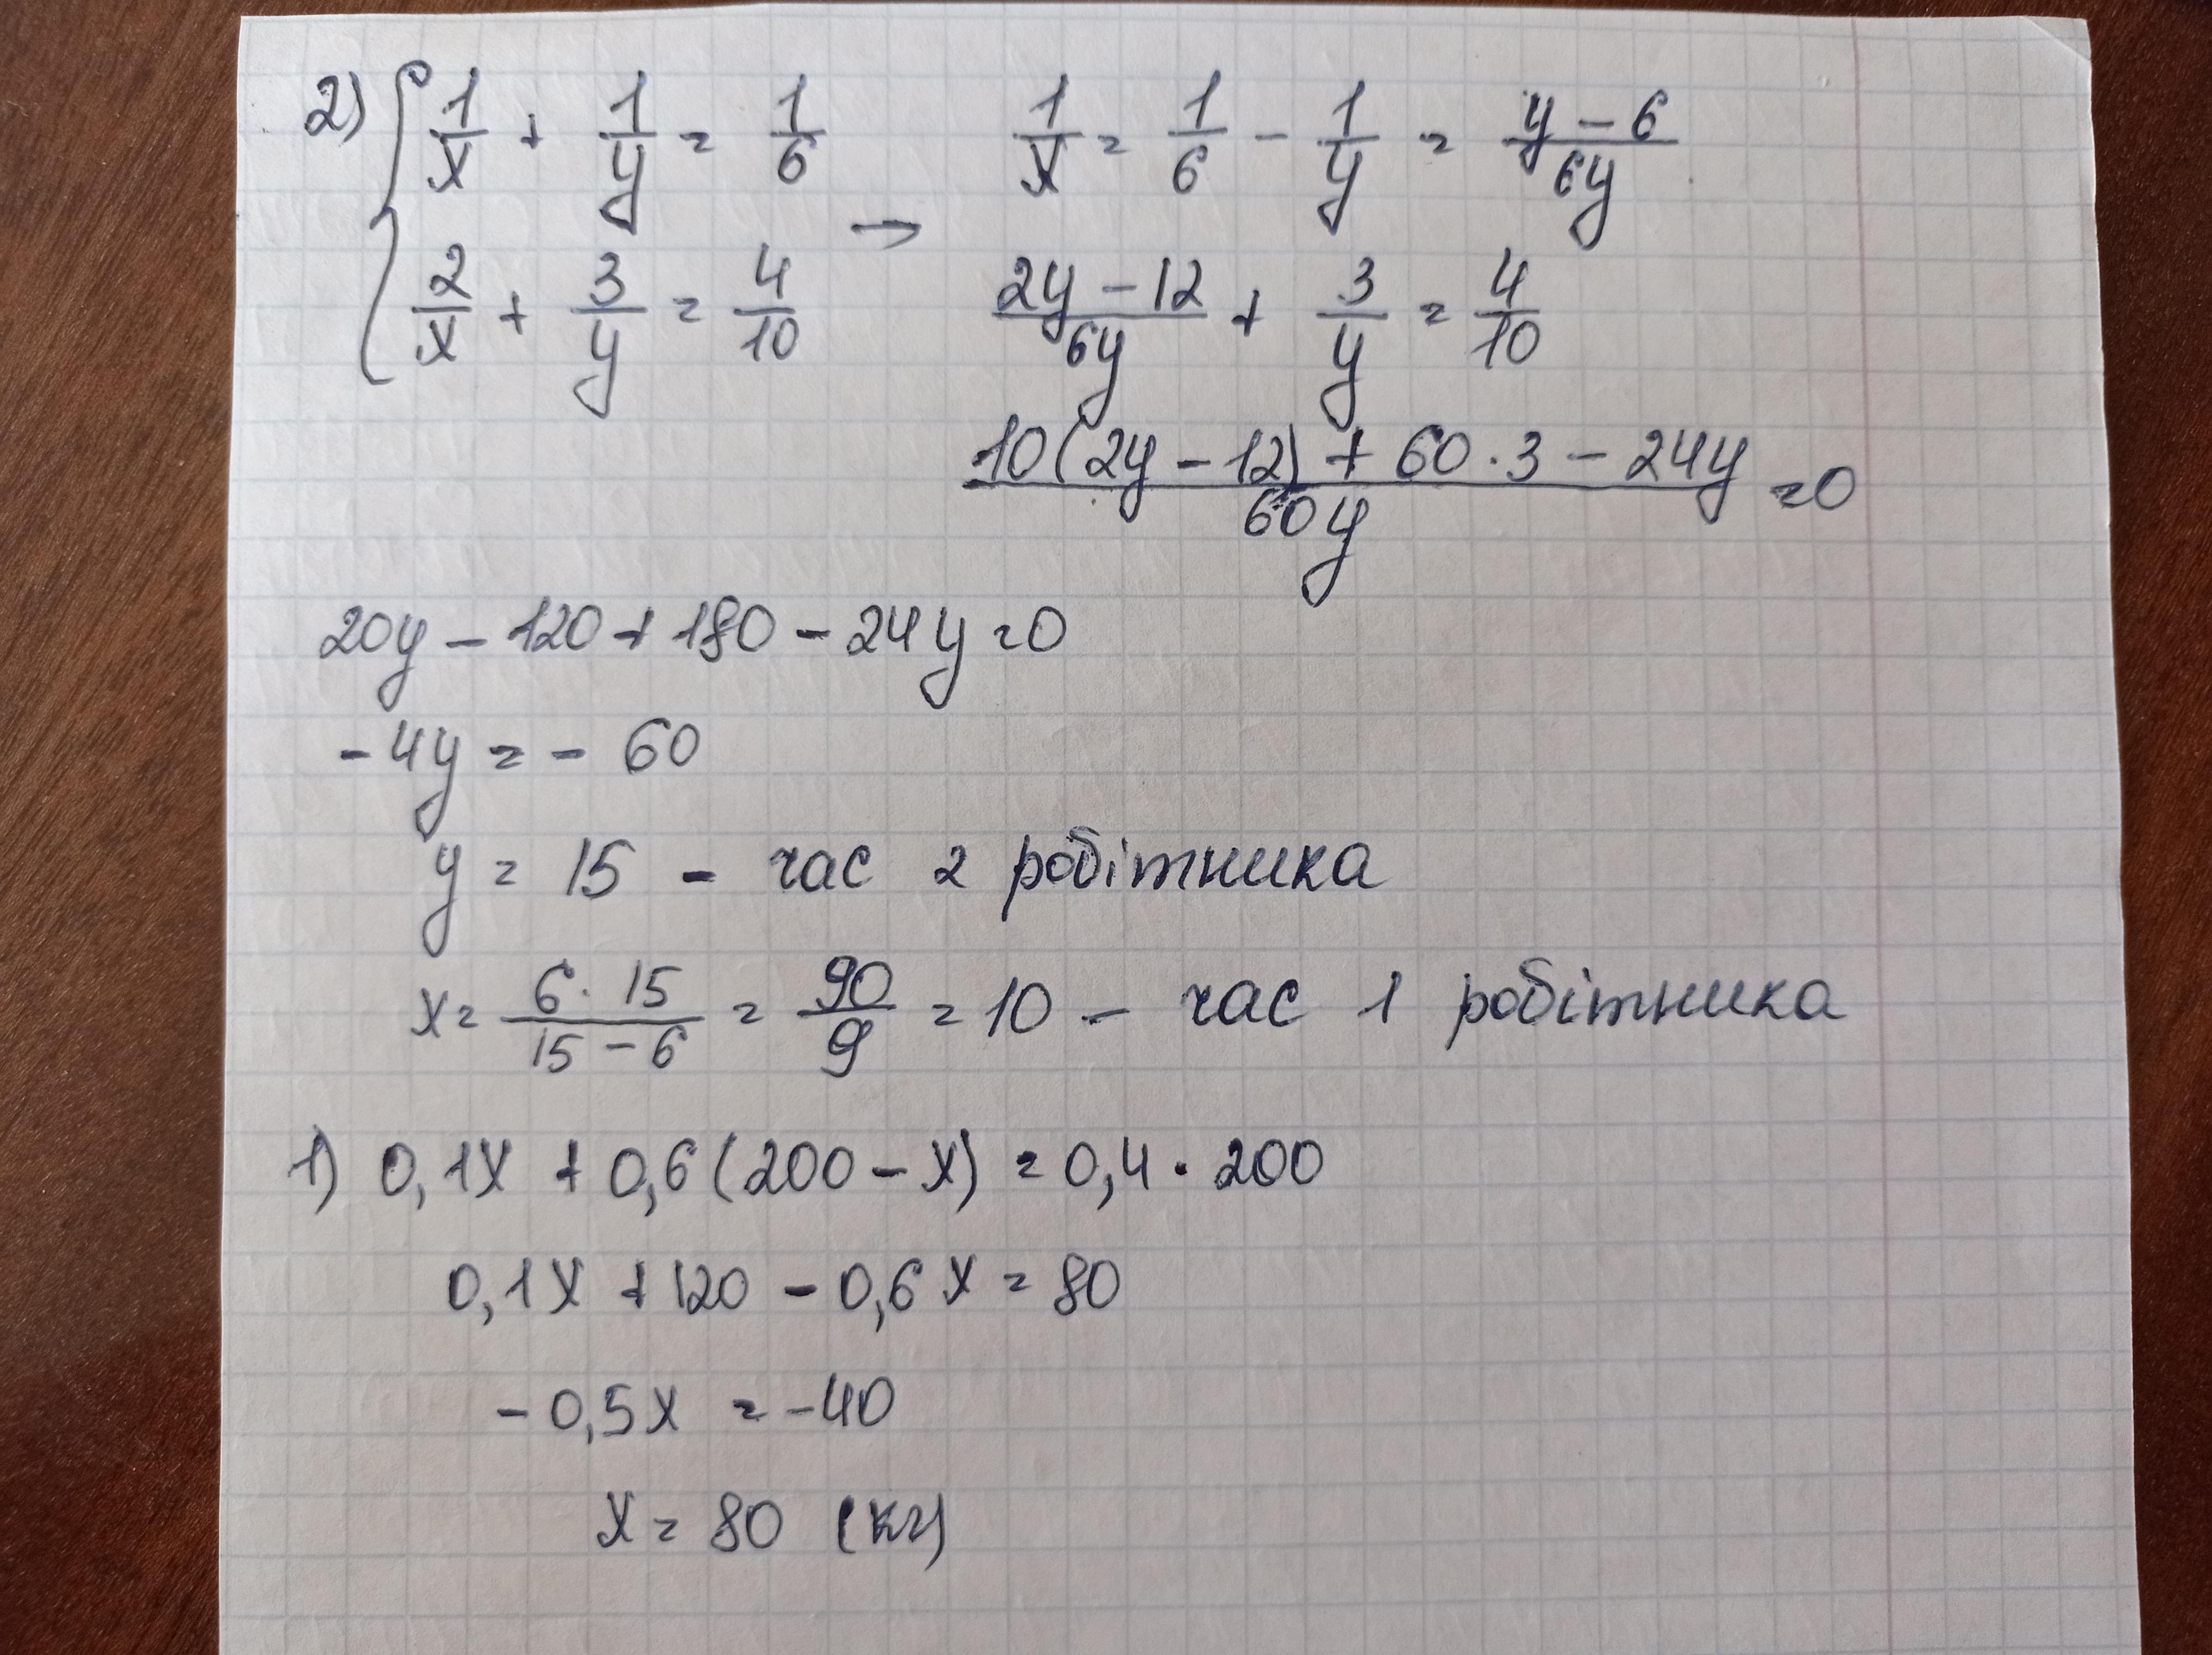 2) { 1/x + 1/y = 1/6 → 1/x = 1/6 - 1/y = (y - 6)/(6y)
2/x + 3/y = 4/10 (2y - 12)/(6y) + 3/y = 4/10
(10(2y - 12) + 60 · 3 - 24y)/(60y) = 0
20y - 120 + 180 - 24y = 0
-4y = - 60
y = 15 - час 2 робітника
x = (6 · 15)/(15 - 6) = 90/9 = 10 - час 1 робітника
1) 0,1x + 0,6(200 - x) = 0,4 · 200
0,1x + 120 - 0,6x = 80
- 0,5x = -40
x = 80 (кг)